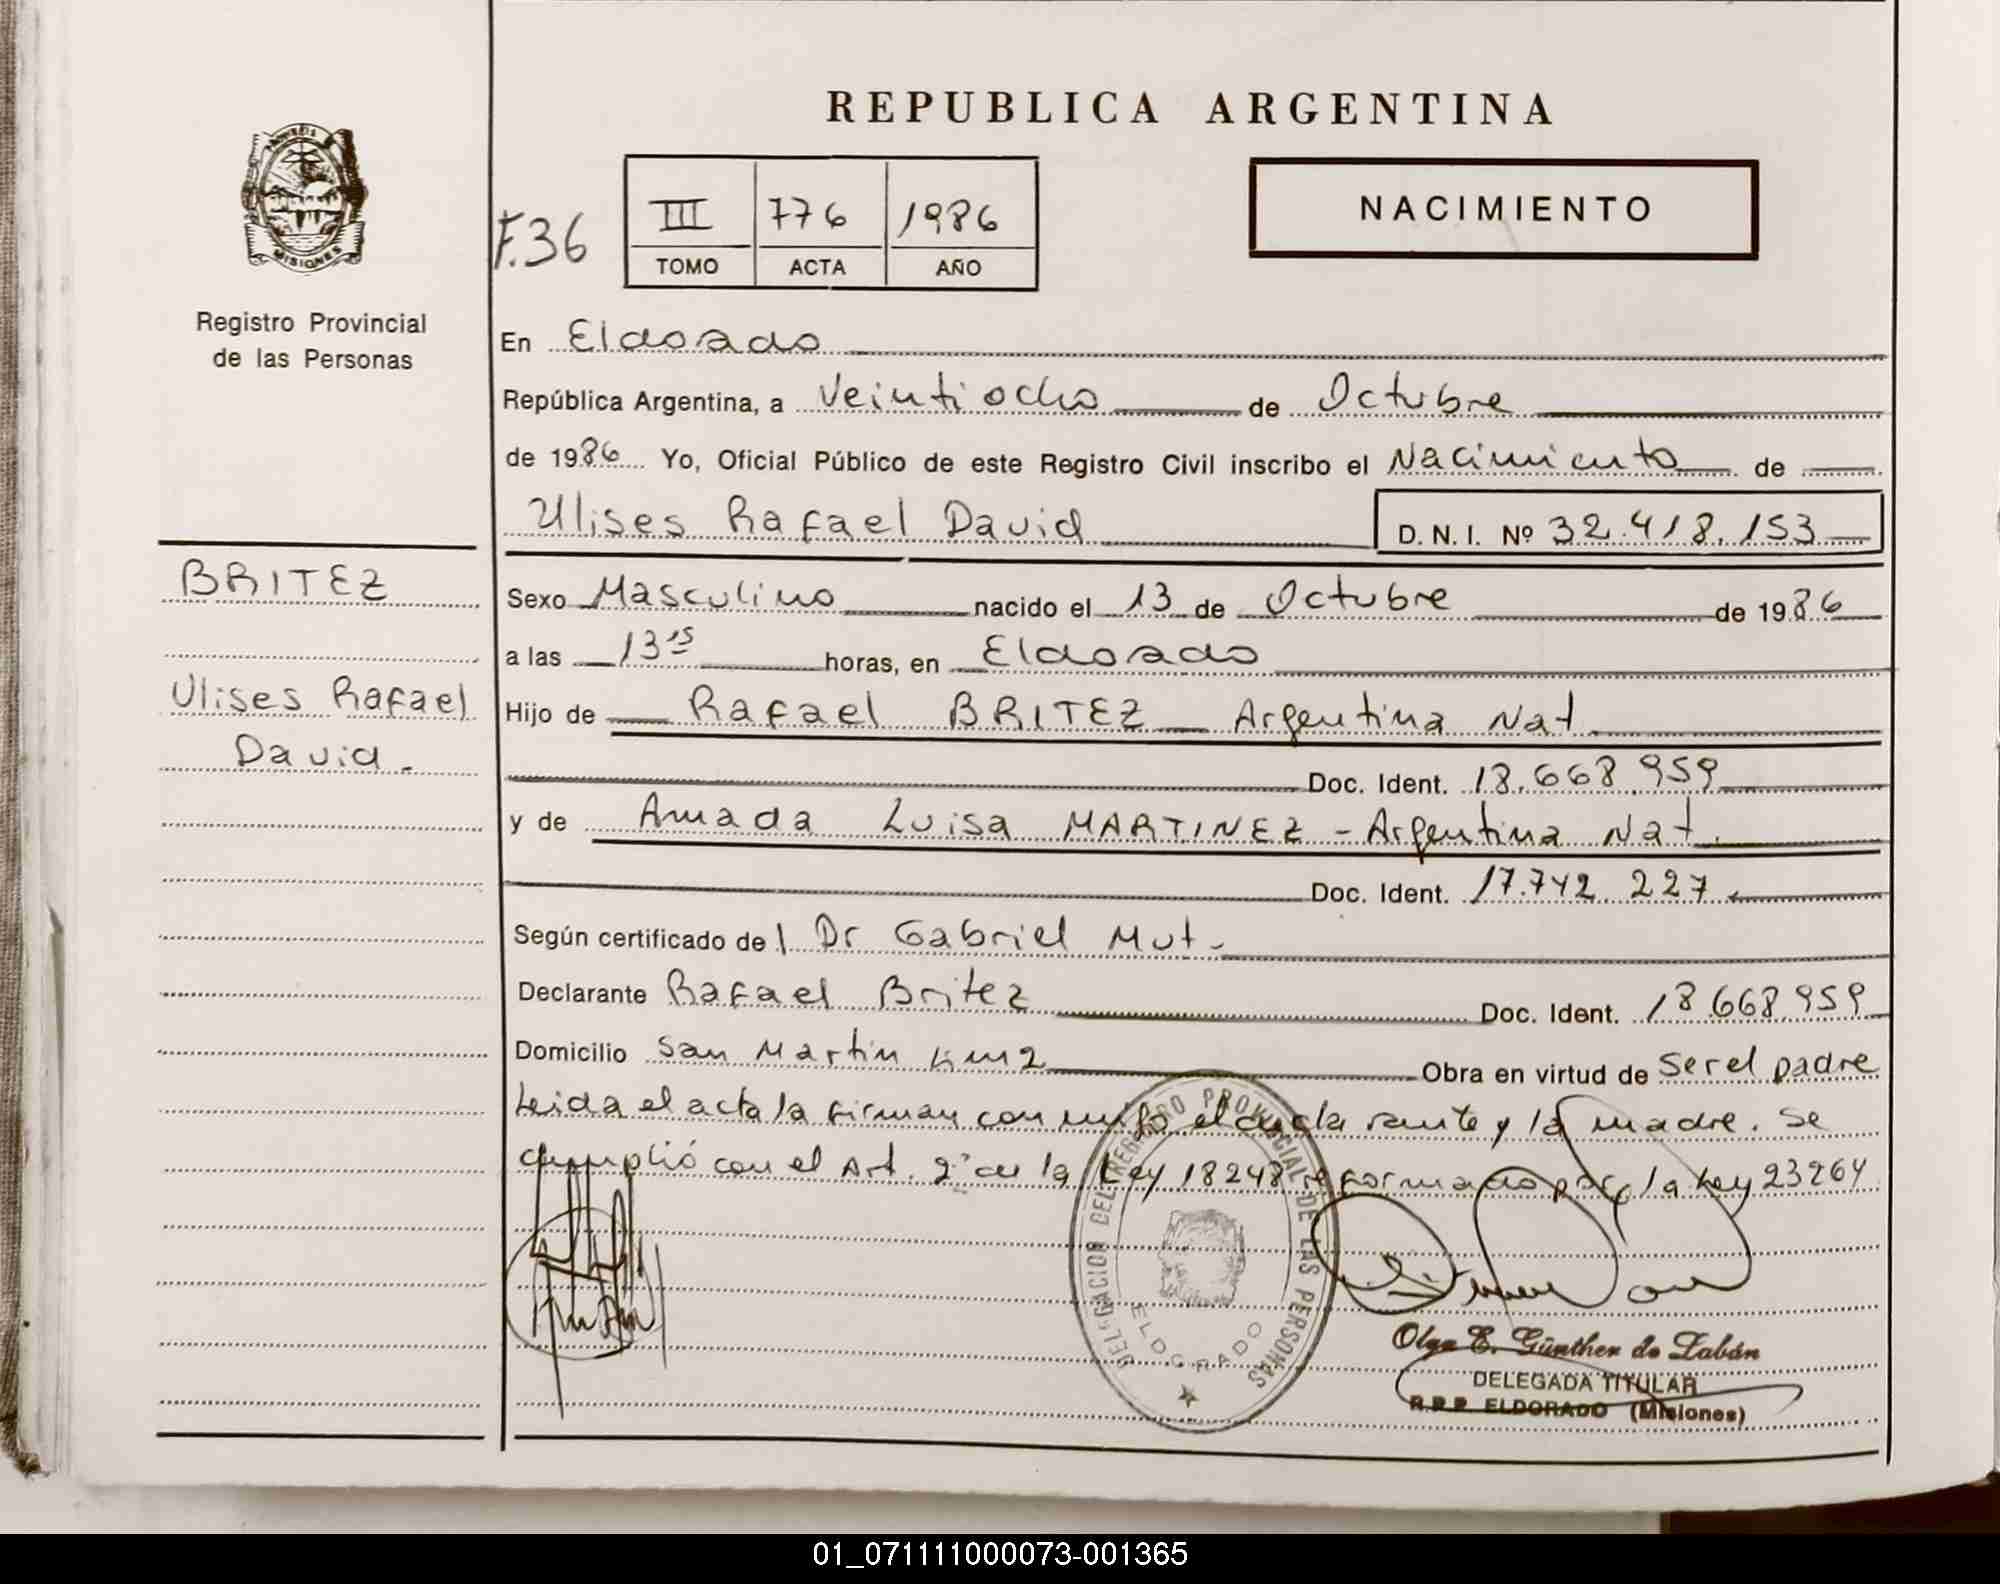 REPUBLICA ARGENTINA
MISIONES
Registro Provincial
de las Personas
F.36
III 776 1986
TOMO ACTA AÑO
NACIMIENTO
En Eldorado
República Argentina, a Veintiocho de Octubre
de 1986 Yo, Oficial Público de este Registro Civil inscribo el Nacimiento de
Ulises Rafael David D. N. I. Nº 32.418.153
BRITEZ
Ulises Rafael
David.-
Sexo Masculino nacido el 13 de Octubre de 1986
a las 13 15 horas, en Eldorado
Hijo de Rafael BRITEZ Argentina Nat
Doc. Ident. 18.668.959
y de Amada Luisa MARTINEZ - Argentina Nat.
Doc. Ident. 17.742.227
Según certificado de l Dr Gabriel Mut.-
Declarante Rafael Britez Doc. Ident. 18.668.959
Domicilio San Martin km 2 Obra en virtud de ser el padre
Leida el acta la firman conmigo el declarante y la madre. Se
cumplió con el Art. 2º de la Ley 18248 reformado por la Ley 23264
DELEGACION DEL REGISTRO PROVINCIAL DE LAS PERSONAS
ELDORADO
Olga E. Günther de Labán
DELEGADA TITULAR
R.P.P. ELDORADO (Misiones)
01_071111000073-001365